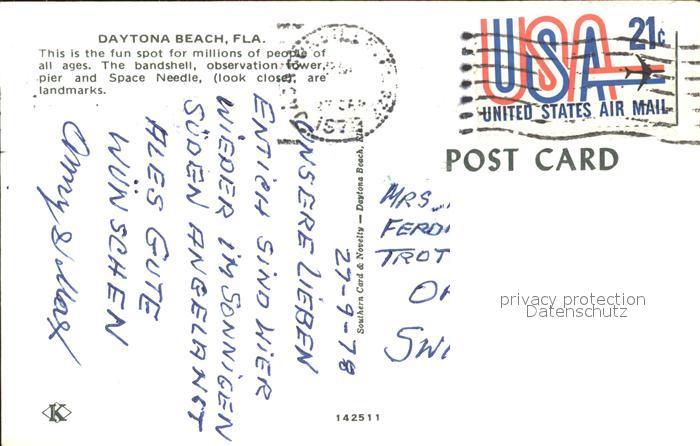 DAYTONA BEACH, FLA.
This is the fun spot for millions of people of
all ages. The bandshell, observation tower,
pier and Space Needle, (look close), are
landmarks.
USA 21c
UNITED STATES AIR MAIL
POST CARD
27-9-78
UNSERE LIEBEN
ENTICH SIND WIER
WIEDER IM SONNIGEN
SÜDEN ANGELANGT
ALES GUTE
WÜNSCHEN
Southern Card & Novelty — Daytona Beach, Fla.
MRS.
FERD
TROT
SWI
privacy protection
Datenschutz
K
142511